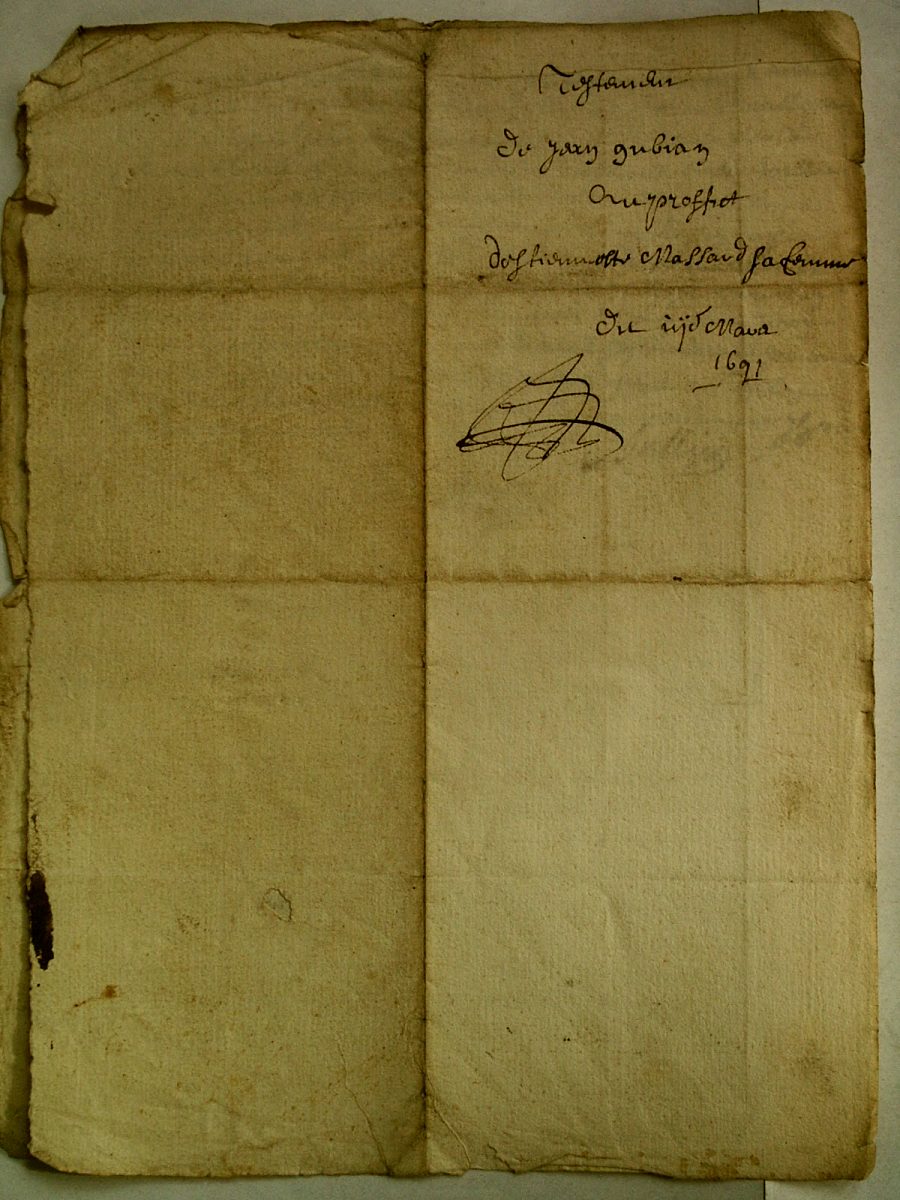 Testemen
de jean gubian
Au proffict
destiennette Massard sa femme
du iije Mars
1691